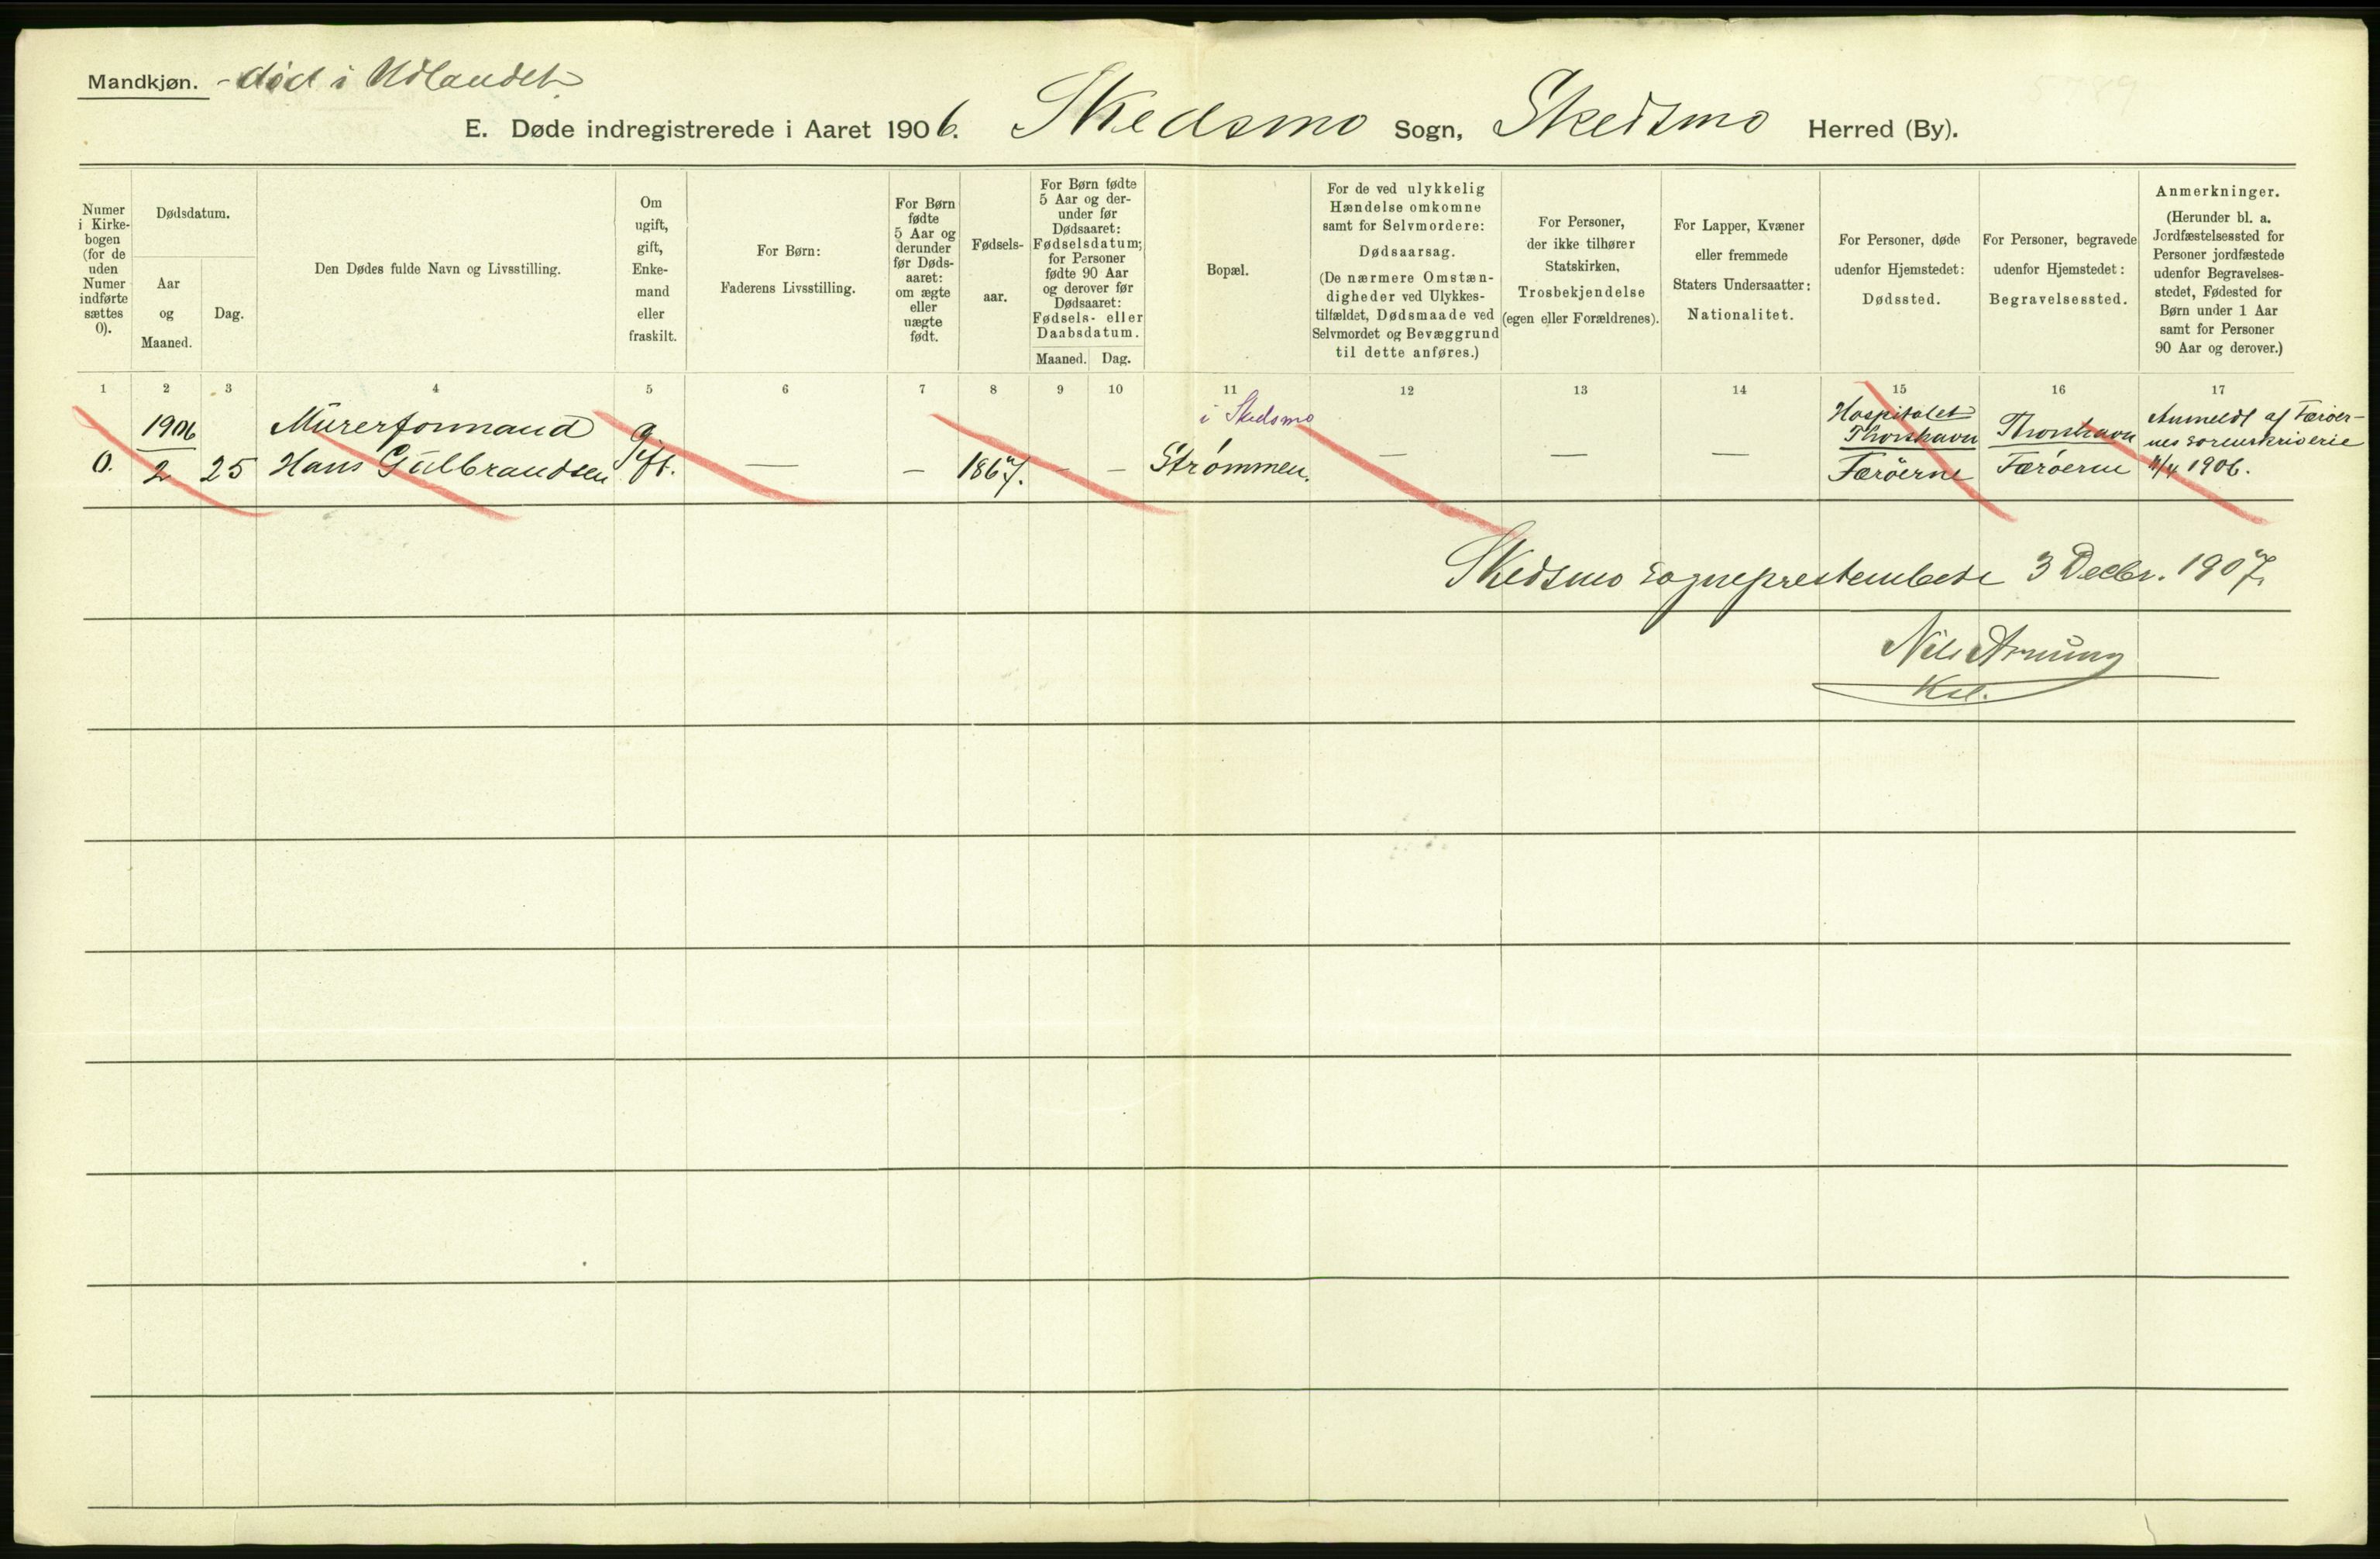 Mandkjøn. - død i Udlandet
E. Døde indregistrerede i Aaret 1906. Skedsmo Sogn, Skedsmo Herred (By).
Numer
i Kirke-
bogen
(for de
uden
Numer
indførte
sættes
0).
Dødsdatum.
Aar
og
Maaned.
Dag.
Den Dødes fulde Navn og Livsstilling.
Om
ugift,
gift,
Enke-
mand
eller
fraskilt.
For Børn:
Faderens Livsstilling.
For Børn
fødte
5 Aar og
derunder
før Døds-
aaret:
om ægte
eller
uægte
født.
Fødsels-
aar.
For Børn fødte
5 Aar og der-
under før
Dødsaaret:
Fødselsdatum;
for Personer
fødte 90 Aar
og derover før
Dødsaaret:
Fødsels- eller
Daabsdatum.
Maaned. Dag.
Bopæl.
For de ved ulykkelig
Hændelse omkomne
samt for Selvmordere:
Dødsaarsag.
(De nærmere Omstæn-
digheder ved Ulykkes-
tilfældet, Dødsmaade ved
Selvmordet og Bevæggrund
til dette anføres.)
For Personer,
der ikke tilhører
Statskirken,
Trosbekjendelse
(egen eller Forældrenes).
For Lapper, Kvæner
eller fremmede
Staters Undersaatter:
Nationalitet.
For Personer, døde
udenfor Hjemstedet:
Dødssted.
For Personer, begravede
udenfor Hjemstedet:
Begravelsessted.
Anmerkninger.
(Herunder bl. a.
Jordfæstelsessted for
Personer jordfæstede
udenfor Begravelses-
stedet, Fødested for
Børn under 1 Aar
samt for Personer
90 Aar og derover.)
1 2 3 4 5 6 7 8 9 10 11 12 13 14 15 16 17
0.
1906
2
25
Murerformand
Hans Gulbrandsen
Gift.
—
—
1867.
—
—
i Skedsmo
Strømmen.
—
—
—
Hospitalet
Thorshavn
Færøerne
Thorshavn
Færøerne
Anmeldt af Færøer-
nes sorenskriveri
1906.
Skedsmo sogneprestembede 3 Decbr. 1907.
Nils